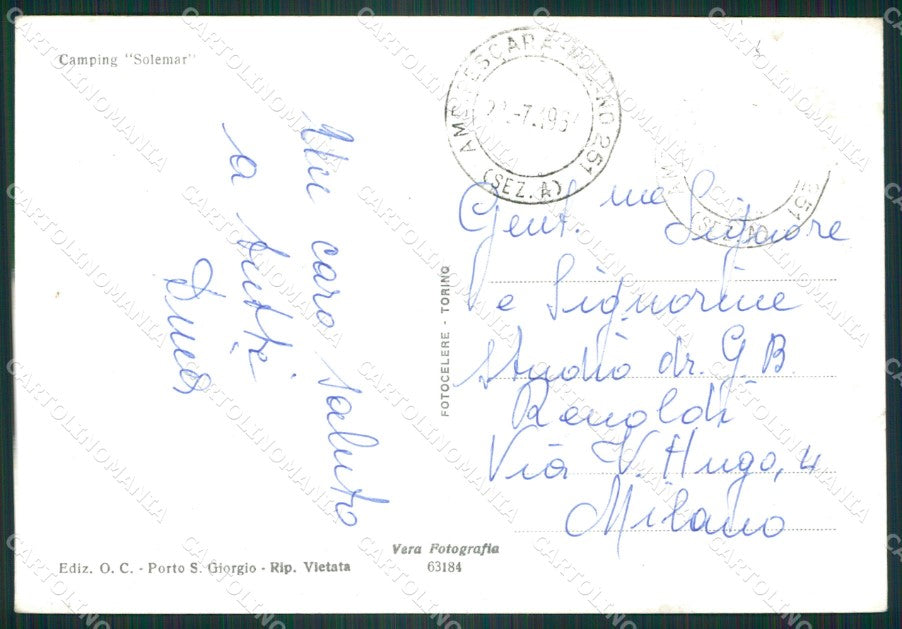 Camping "Solemar"
Un caro saluto
a tutti
AMB. PESCARA-MILANO 251
(SEZ. A)
251
(SEZ. A)
Gent.me Signore
e Signorine
Studio dr. G. B.
Renoldi
Via V. Hugo, 4
Milano
FOTOCELERE - TORINO
Vera Fotografia
63184
Ediz. O. C. - Porto S. Giorgio - Rip. Vietata
CARTOLINOMANIA